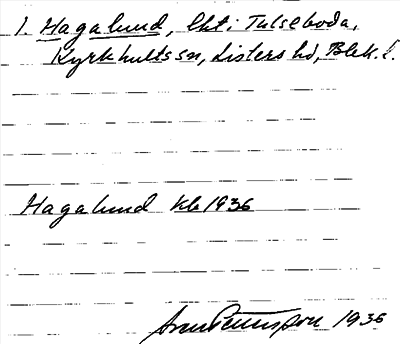 1. Hagalund, lht. i Tulseboda,
Kyrkhults sn, Listers hd, Blek. l.
Hagalund Kb 1936
1936